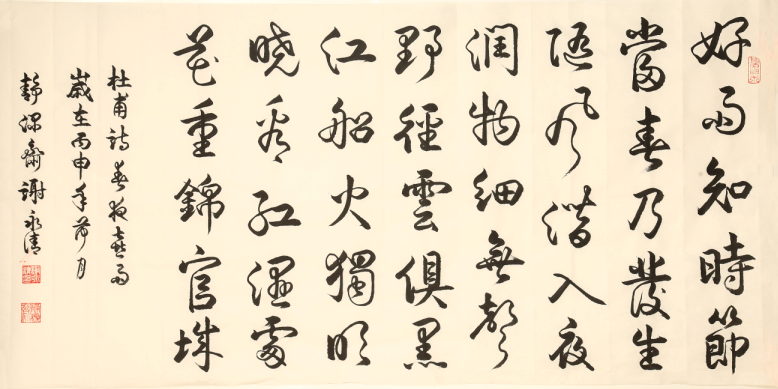 好雨知時節
當春乃發生
隨風潛入夜
潤物細無聲
野徑雲俱黑
江船火獨明
曉看紅濕處
花重錦官城
杜甫詩春夜喜雨
歲在丙申年荷月
靜深齋謝永清